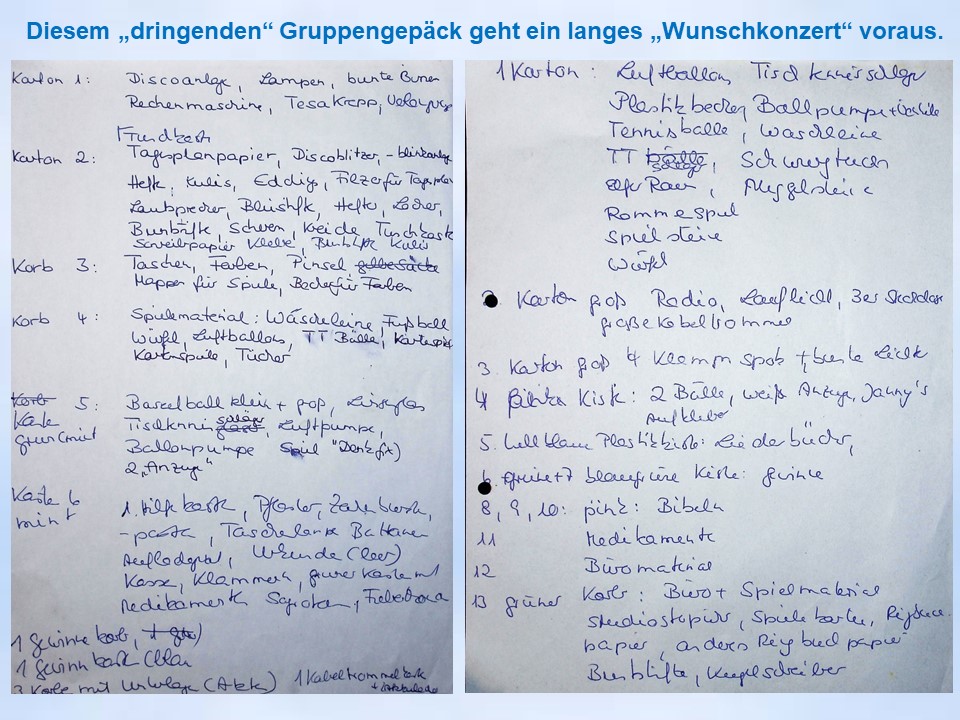 Diesem „dringenden“ Gruppengepäck geht ein langes „Wunschkonzert“ voraus.
Karton 1: Discoanlage, Lampen, bunte Birnen
Rechenmaschine, TesaKrepp,
Karton 2: Tagesplanpapier, Discoblitzer,
Hefte, Kulis, Eddigs, Filzer für Tagesplan
Lautsprecher, Bleistifte, Hefter, Locher,
Buntstifte, Scheren, Kreide, Tuschkaste
Schreibpapier Kleber, Buntstifte Kulis
Korb 3: Taschen, Farben, Pinsel, gelbe Säcke
Mappen für Spiele, Becher für Farben
Korb 4: Spielematerial: Wäscheleine, Fußball
Würfel, Luftballons, TT Bälle, Kartenspiel
Kartenspiele, Tücher
Korb 5: Baseball klein + groß,
Kiste
grün (mint
Tischtennisschläger, Luftpumpe,
Ballonpumpe Spiel "Denkfix)
2 „Anzüge“
Kiste 6
mint
1. Hilfekasten, Pflaster, Zahnbürste,
-pasta, Taschenlampe Batterien
Urkunde (leer)
Kasse, Klammern, grüner Kasten mit
Medikamente
1 Gewinnekorb,
1 Gewinnkorb blau
1 Kabeltrommel
1 Karton: Luftballons Tischtennisschläger
Plastikbecher, Ballpumpe +
Tennisbälle, Waschleine
TT Bälle Schläger, Schwungtuch
Muggelsteine
Rommespiel
Spielsteine
Würfel
2. Karton groß Radio, Lauflicht, 3er Steckdose
große Kabeltrommel
3. Karton groß 4 Klemmspots + bunte Licht
4 Kiste: 2 Bälle, weiße Anzüge, Janny's
Aufkleber
5. hellblaue Plastikkiste: Liederbücher,
6. grüne + 7 blaugrüne Kiste: Gewinne
8, 9, 10: pink: Bibeln
11 Medikamente
12 Büromaterial
13 grüner Korb: Büro + Spielmaterial
Spielekarten,
papier, anderes Ringbuchpapier
Buntstifte, Kugelschreiber